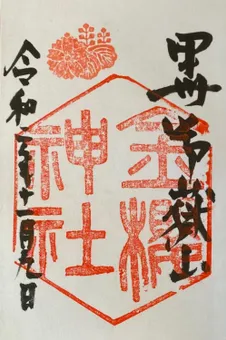 甲州御嶽山
金櫻
神社
令和年十一月九日